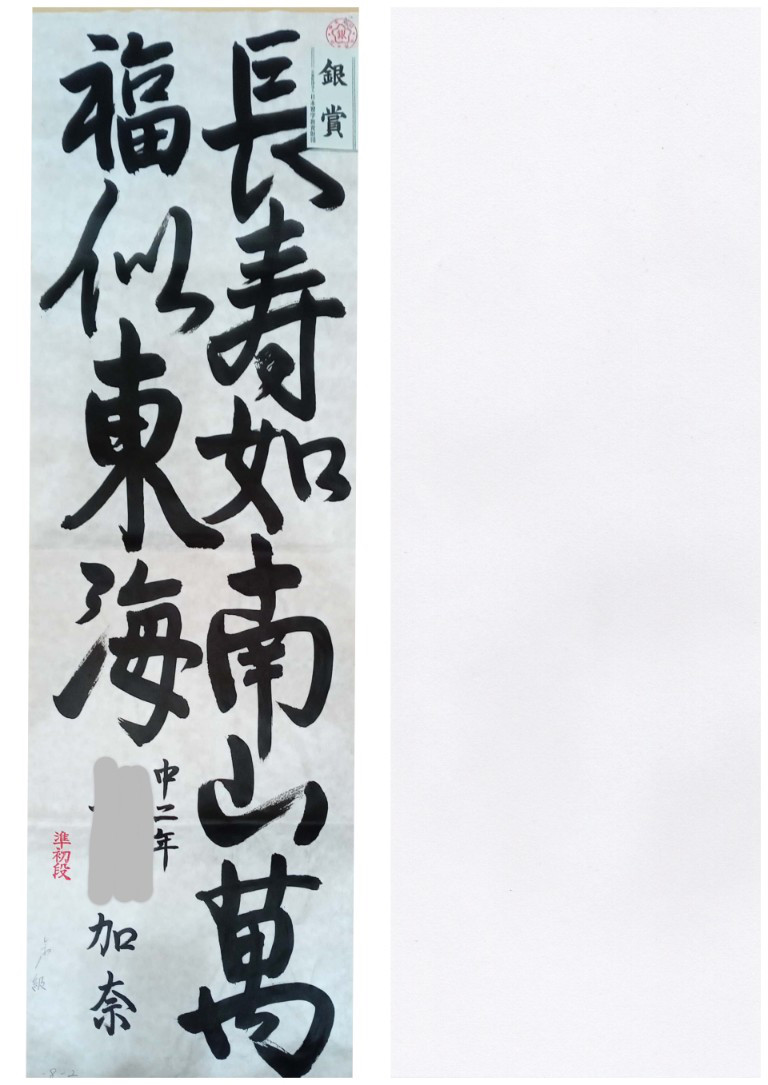 長寿如南山萬
福似東海
中二年
加奈
準初段
銀賞